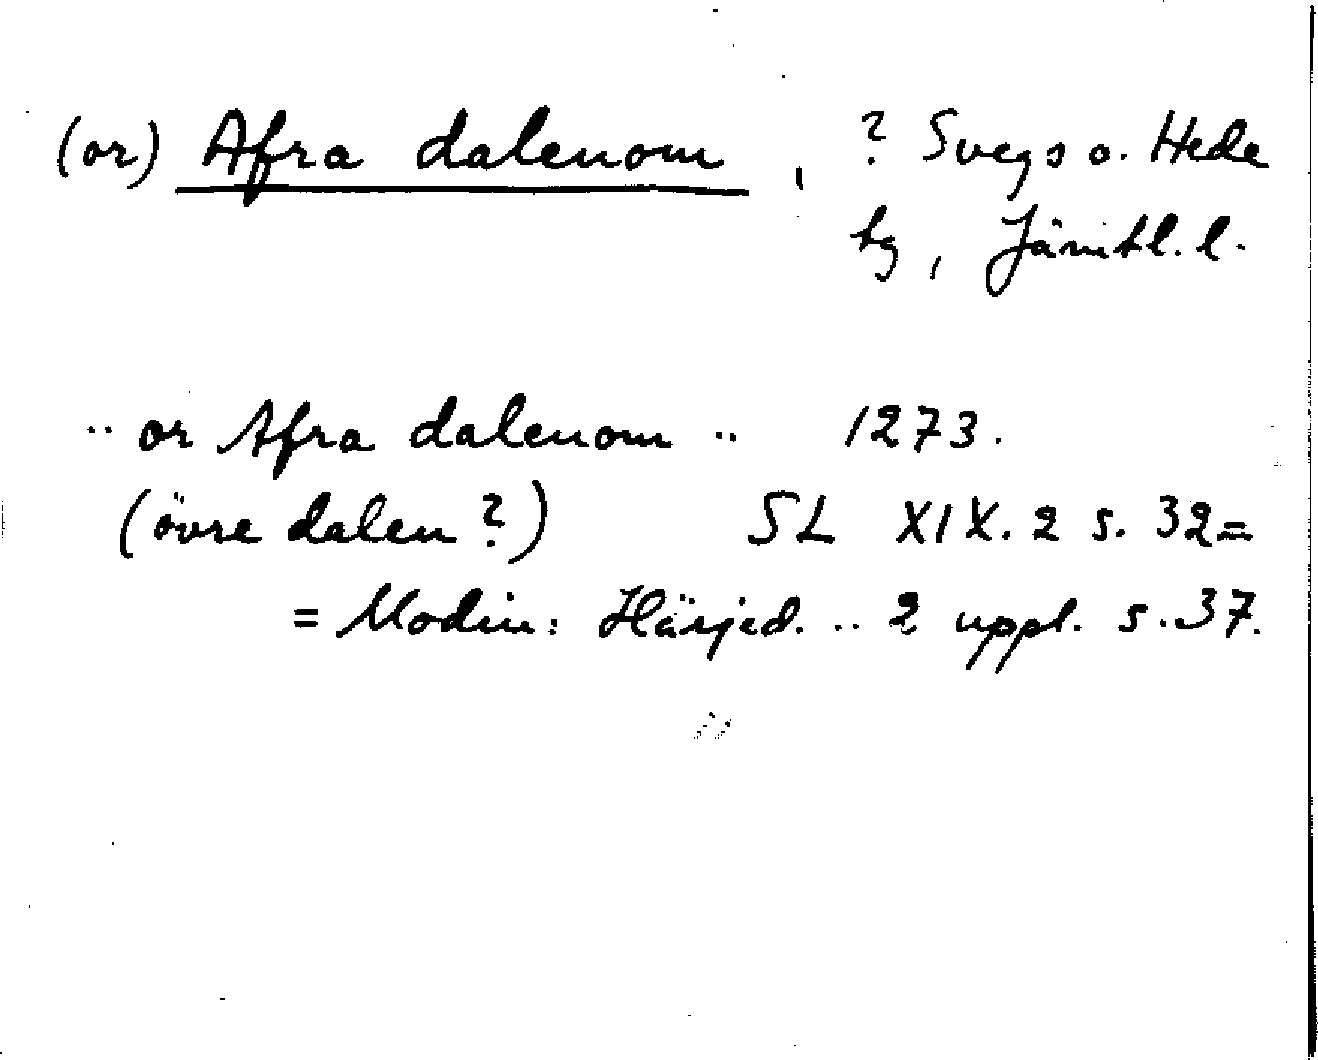 (or) Afra dalenom, ? Svegs o. Hede
tg, Jämtl. l.
.. or Afra dalenom .. 1273.
(övre dalen ?) SL XIX. 2 s. 32 =
= Modin: Härjed. .. 2 uppl. s. 37.